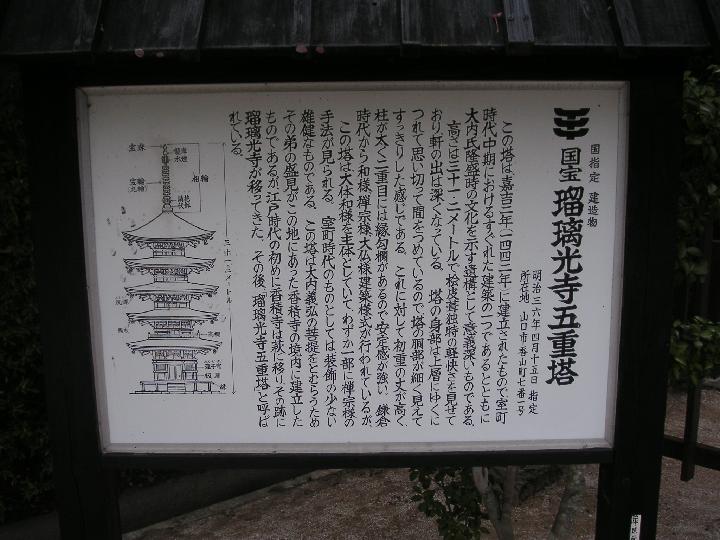 国指定 建造物
国宝 瑠璃光寺五重塔
明治三六年四月十五日 指定
所在地 山口市香山町七番一号
この塔は嘉吉二年(一四四二年)に建立されたもので室町
時代中期におけるすぐれた建築の一つであるとともに
大内氏隆盛時の文化を示す遺構として意義深いものである。
高さは三十一、二メートルで桧皮葺独特の軽快さを見せて
おり軒の出は深くなっている。塔の身部は上層にゆくに
つれて思い切って間をつめているので塔の胴部が細く見えて
すっきりした感じである。これに対して初重の丈が高く
柱が太く二重目には縁勾欄があるので安定感が強い。鎌倉
時代から和様、禅宗様、大仏様建築様式が行われているが、
この塔は大体和様を主体としていてわずか一部に禅宗様の
手法が見られる。室町時代のものとしては装飾の少ない
雄健なものである。この塔は大内義弘の菩提をとむらうため
その弟の盛見がこの地にあった香積寺の境内に建立した
ものであるが江戸時代の初めに香積寺は萩に移りその跡に
瑠璃光寺が移ってきた。その後、瑠璃光寺五重塔と呼ば
れている。
宝珠
相輪
三十一、二メートル